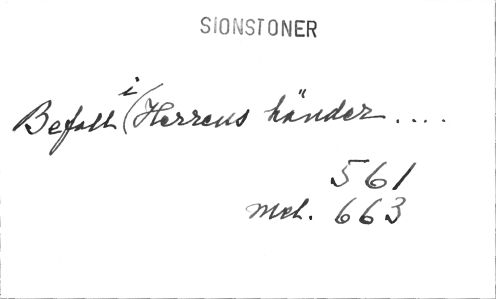 SIONSTONER
Befall i (Herrens händer....
561
mel. 663